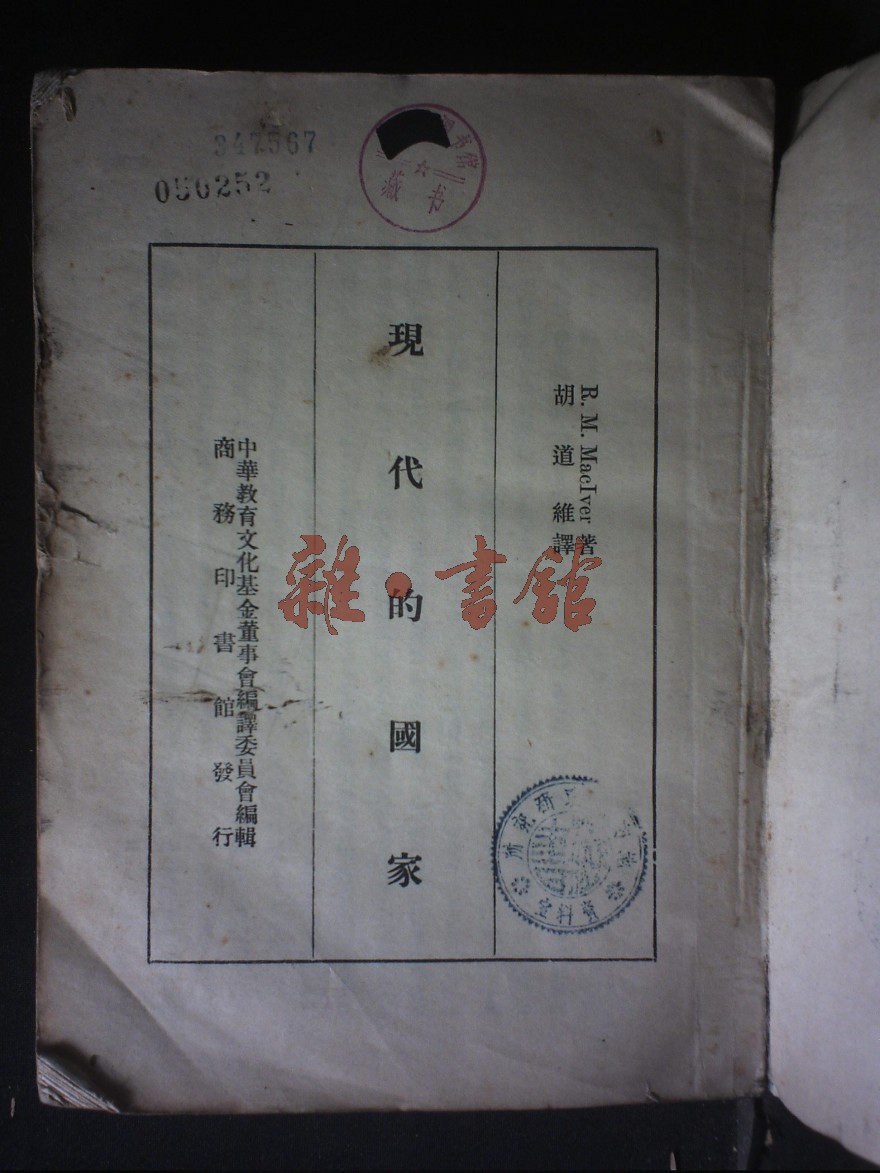 347567
050252
藏书
R. M. MacIver 著
胡道維譯
現代的國家
中華教育文化基金董事會編譯委員會編輯
商務印書館發行
雜·書館
研究所
資料室